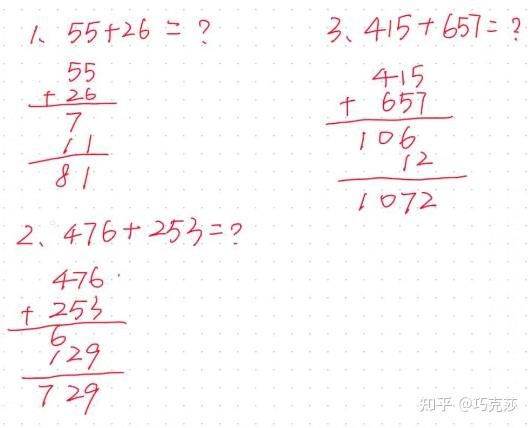 1、55+26=?
55
+ 26
7
11
81
2、476+253=?
476
+ 253
6
129
729
3、415+657=?
415
+ 657
106
12
1072
知乎 @巧克莎